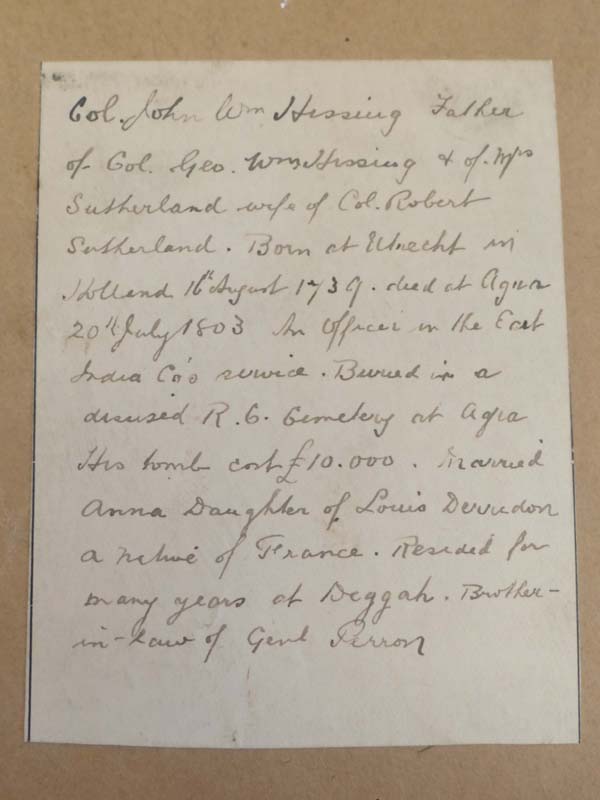 Col. John Wm Hessing Father
of Col. Geo. Wm Hessing & of Mrs
Sutherland wife of Col. Robert
Sutherland. Born at Utrecht in
Holland 16th August 1739. died at Agra
20th July 1803 An Officer in the East
India Co's service. Buried in a
disused R.C. Cemetery at Agra
His tomb cost £10.000. Married
Anna Daughter of Louis Derridon
a native of France. Resided for
many years at Deggah. Brother-
in-law of Genl Perron